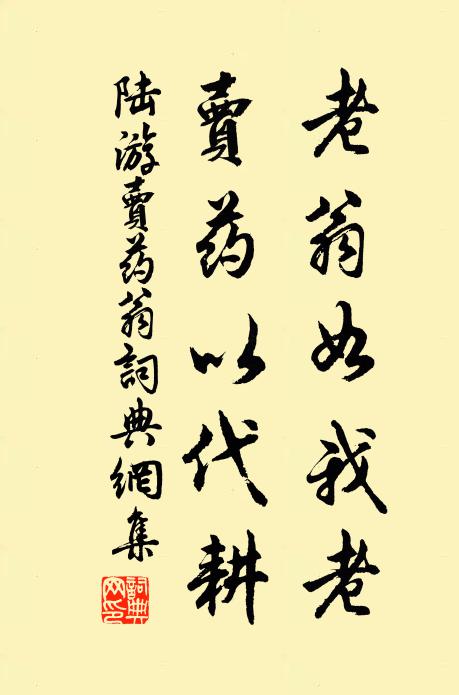 老翁如我老
賣药以代耕
陆游賣药翁詞典網集
詞典网印